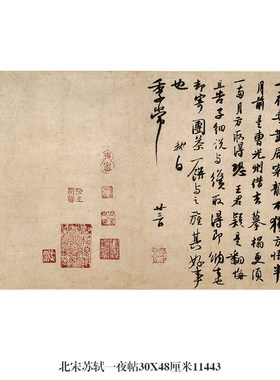 一夜尋黃居寀龍不獲方悟半
月前是曹光州借去摹搨更須
一兩月方取得恐王君疑是翻悔
且告子細說與纔取得即納去也
却寄團茶一餅與之旌其好事
也 軾白
季常 廿三日
北宋苏轼一夜帖30X48厘米11443